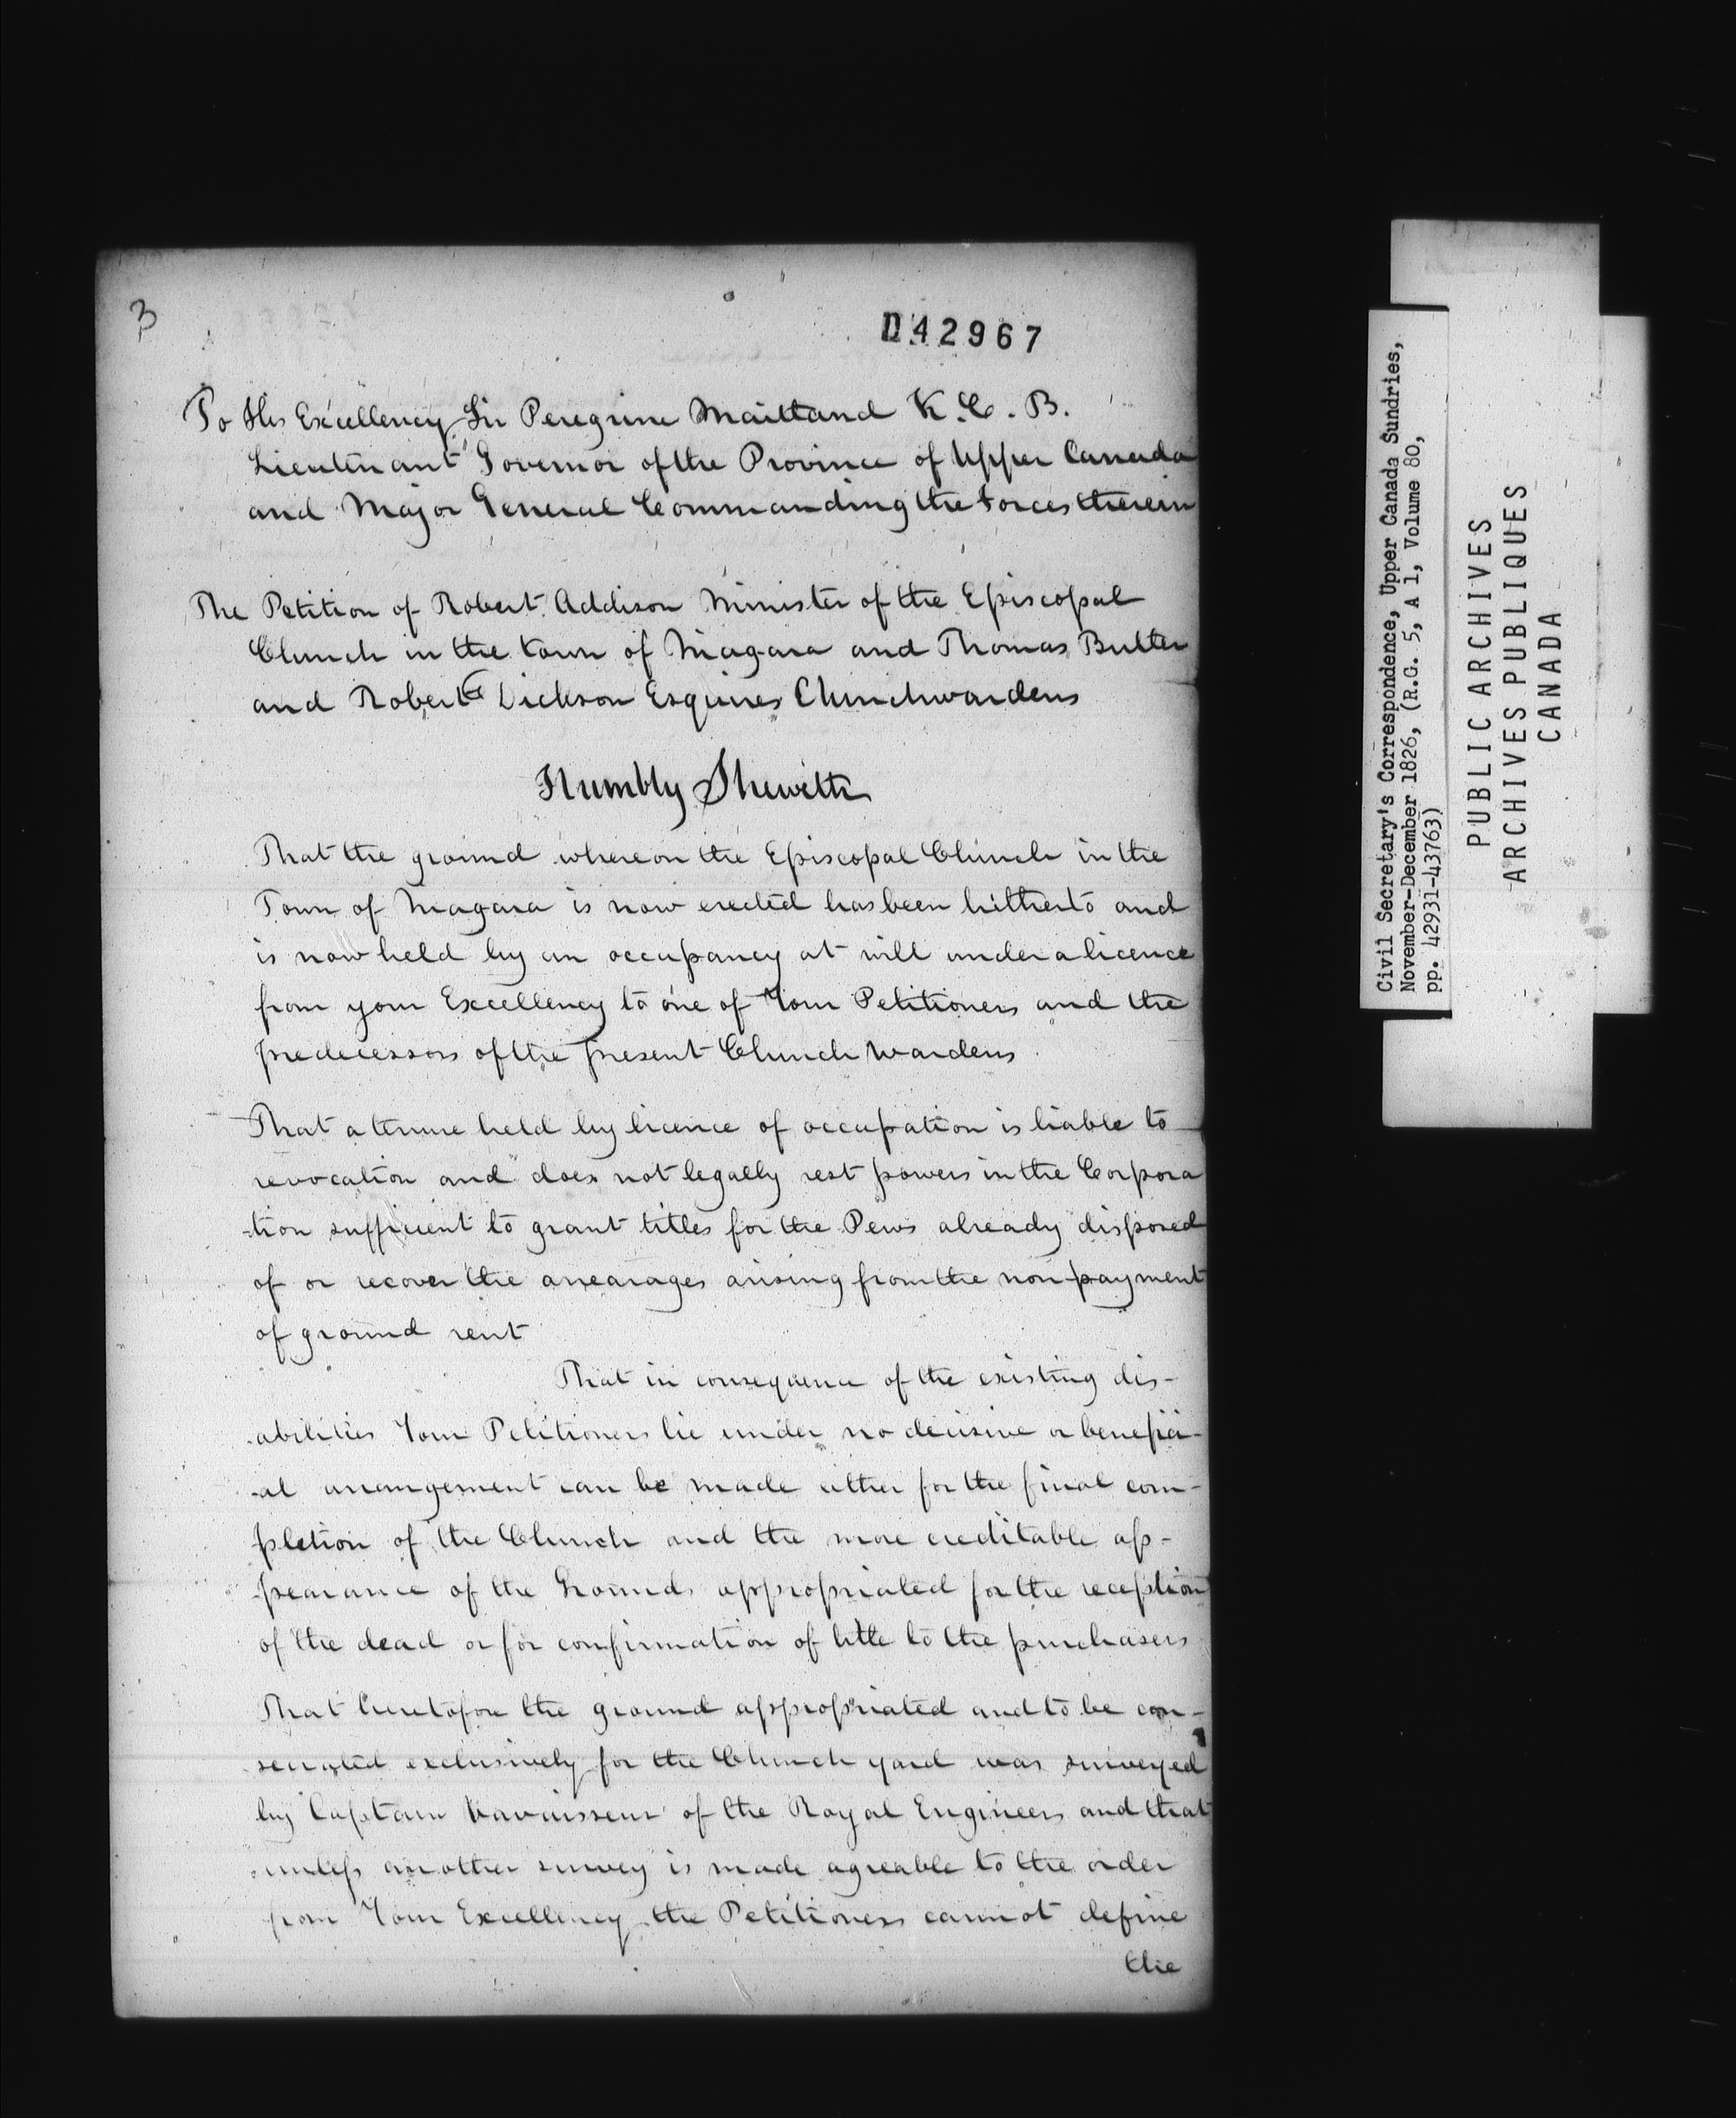 3
D42967
To His Excellency Sir Peregrine Maitland K.C.B.
Lieutenant Governor of the Province of Upper Canada
and Major General Commanding the Forces therein
The Petition of Robert Addison Minister of the Episcopal
Church in the town of Niagara and Thomas Butler
and Robert Dickson Esquires Churchwardens
Humbly Sheweth
That the ground whereon the Episcopal Church in the
Town of Niagara is now erected has been hitherto and
is now held by an occupancy at will under a licence
from your Excellency to one of Your Petitioners and the
predecessors of the present Church Wardens
That a tenure held by licence of occupation is liable to
revocation and does not legally vest powers in the Corpora
-tion sufficient to grant titles for the Pews already disposed
of or recover the arrearages arising from the non payment
of ground rent
That in consequence of the existing dis-
abilities Your Petitioners lie under no decisive or benefici-
-al arrangement can be made either for the final com-
pletion of the Church and the more creditable ap-
-pearance of the Grounds appropriated for the reception
of the dead or for confirmation of title to the purchasers
That heretofore the ground appropriated and to be con-
secrated exclusively for the Church yard was surveyed
by Captain Vavasseur of the Royal Engineers and that
unless another survey is made agreable to the order
from Your Excellency the Petitioners cannot define
the
Civil Secretary's Correspondence, Upper Canada Sundries,
November-December 1826, (R.G. 5, A 1, Volume 80,
pp. 42931-43763)
PUBLIC ARCHIVES
ARCHIVES PUBLIQUES
CANADA